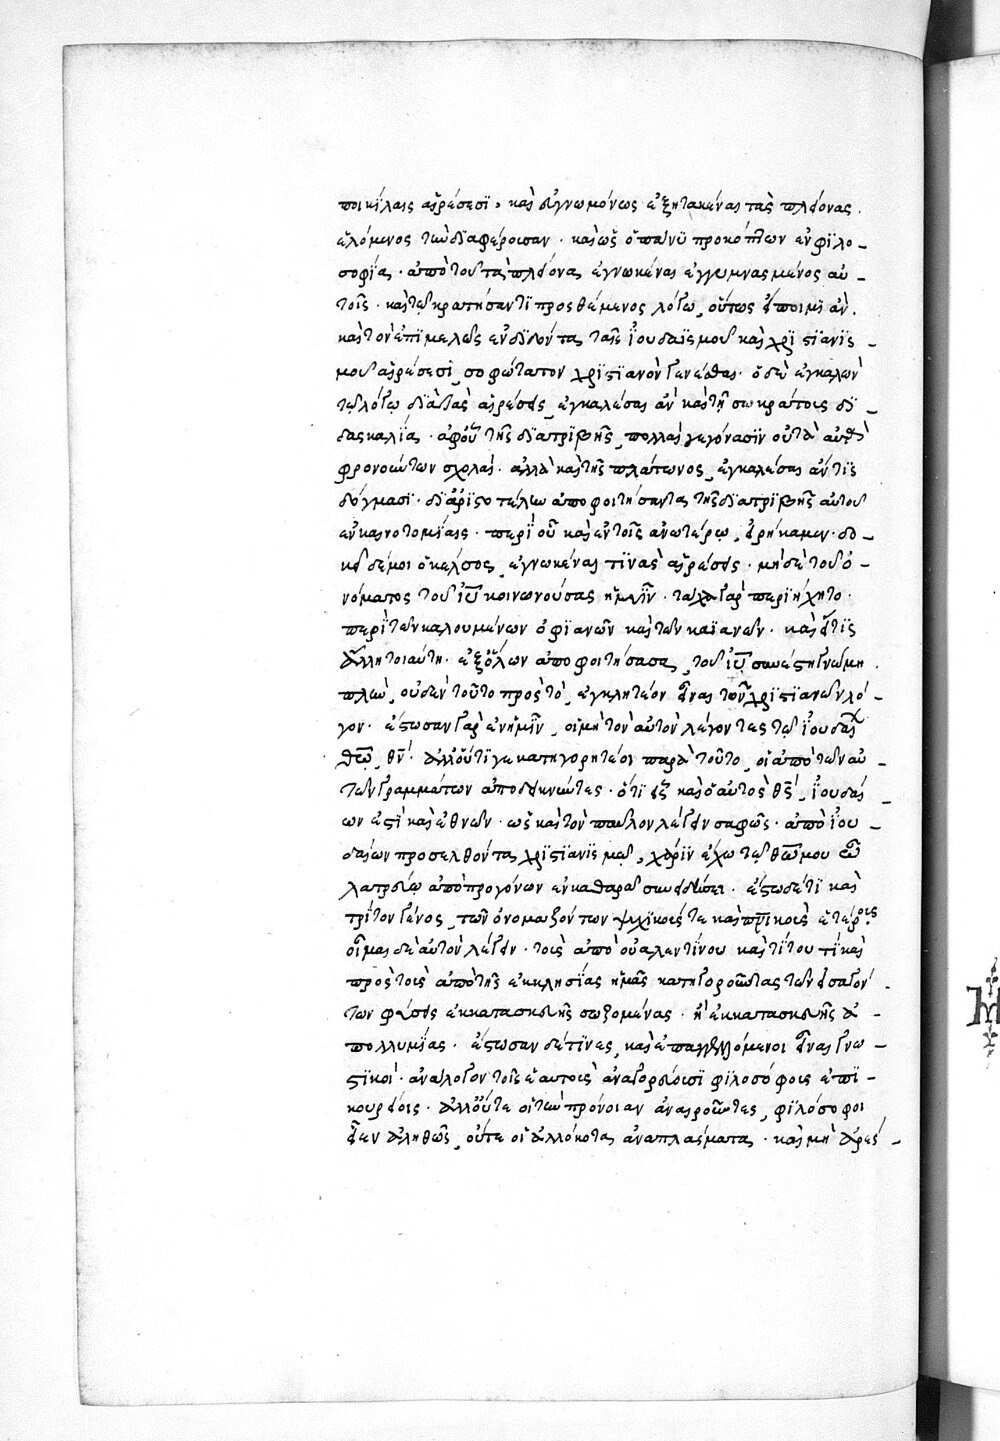 ποικίλαις αἱρέσεσϊ, καὶ εὐγνωμόνως ἐξητακέναι τὰς πλείονας.
ἑλόμενος τὴν διαφέρουσαν. καὶ ὡς ὁ πάνυ προκόπτων ἐν φϊλο-
σοφίᾳ. ἀπὸ τοῦ τὰ πλείονα ἐγνωκέναι ἐγγυμνασμένος αὐ-
τοῖς. καὶ τῷ κρατήσαντϊ προσθέμενος λόγῳ, οὕτως εἴποιμϊ ἂν.
καὶ τὸν ἐπϊμελῶς ἐνϊδόντα ταῖς ϊουδαϊσμοῦ καὶ χρϊστϊανϊσ-
μοῦ αἱρέσεσϊ, σοφώτατον χρϊστϊανὸν γενέσθαι. ὁ δὲ ἐγκαλῶν
τῷ λόγῳ δϊὰ τὰς αἱρέσεις, ἐγκαλέσαι ἂν καὶ τῇ σωκράτους δϊ-
δασκαλίᾳ. ἀφ' οὗ τῆς διατρϊβῆς, πολλαὶ γεγόνασϊν οὐ τὰ αὐτὰ
φρονούντων σχολαί. ἀλλὰ καὶ τοῖς πλάτωνος, ἐγκαλέσαι ἄν τϊς
δόγμασϊ. δϊ' ἀρϊστοτέλην ἀποφοιτήσαντα τῆς δϊατρϊβῆς αὐτοῦ
ἐν καινοτομίαις. περὶ οὗ καὶ ἐν τοῖς ἀνωτέρω, εἰρήκαμεν. δο-
κεῖ δέ μοι ὁ κέλσος, ἐγνωκέναι τϊνὰς αἱρέσεις. μηδὲ τοῦ ὀ-
νόματος τοῦ ἰῦ κοινωνούσας ἡμῖν. τάχα γὰρ περιήχητο.
περὶ τῶν καλουμένων ὀφϊανῶν καὶ τῶν καϊανῶν. καὶ εἴ τϊς
ἄλλη τοιαύτη. ἐξ ὅλων ἀποφοιτήσασα, τοῦ ἰῦ συνέστη γνώμη.
πλὴν, οὐδὲν τοῦτο πρὸς τὸ, ἐγκλητέον εἶναι τὸν χρϊστϊανῶν λό-
γον. ἔστωσαν γὰρ ἐν ἡμῖν, οἱ μὴ τὸν αὐτὸν λέγοντες τῷ ϊουδαί
θεῷ, θν. ἀλλ' οὔτϊ γε κατηγορητέοι παρὰ τοῦτο, οἱ ἀπὸ τῶν αὐ-
τῶν γραμμάτων ἀποδεικνύντες. ὅτϊ εἷς καὶ ὁ αὐτὸς θς, ϊουδαί-
ων ἐστὶ καὶ ἐθνῶν. ὡς καὶ τὸν παῦλον λέγειν σαφῶς. ἀπὸ ϊου-
δαίων προσελθόντα χρϊστϊανϊσμῷ, χάρϊν ἔχω τῷ θῷ μου ᾧ
λατρεύω ἀπὸ προγόνων ἐν καθαρᾷ συνειδήσει. ἔστω δέ τϊ καὶ
τρίτον γένος, τῶν ὀνομαζόντων ψυχϊκούς τε καὶ πνικοὺς ἑτέρους
οἶμαι δὲ αὐτὸν λέγειν. τοὺς ἀπὸ οὐαλεντίνου καὶ τί τοῦτο τί καὶ
πρὸς τοὺς ἀπὸ τῆς ἐκκλησίας ἡμᾶς κατηγοροῦντας τῶν εἰσαγόν-
των φύσεις ἐκ κατασκευῆς σωζομένας. ἢ ἐκ κατασκευῆς ἀ-
πολλυμένας. ἔστωσαν δέ τϊνες, καὶ ἐπαγγελλόμενοι εἶναι γνω-
στϊκοί. ἀνάλογον τοῖς ἑαυτοὺς ἀναγορεύουσϊ φϊλοσόφους ἐπϊ-
κουρείοις. ἀλλ' οὔτε οἱ τὴν πρόνοιαν ἀναιροῦντες, φϊλόσοφοι
εἶεν ἀληθῶς, οὔτε οἱ ἀλλόκοτα ἀναπλάσματα. καὶ μὴ ἀρέσ-